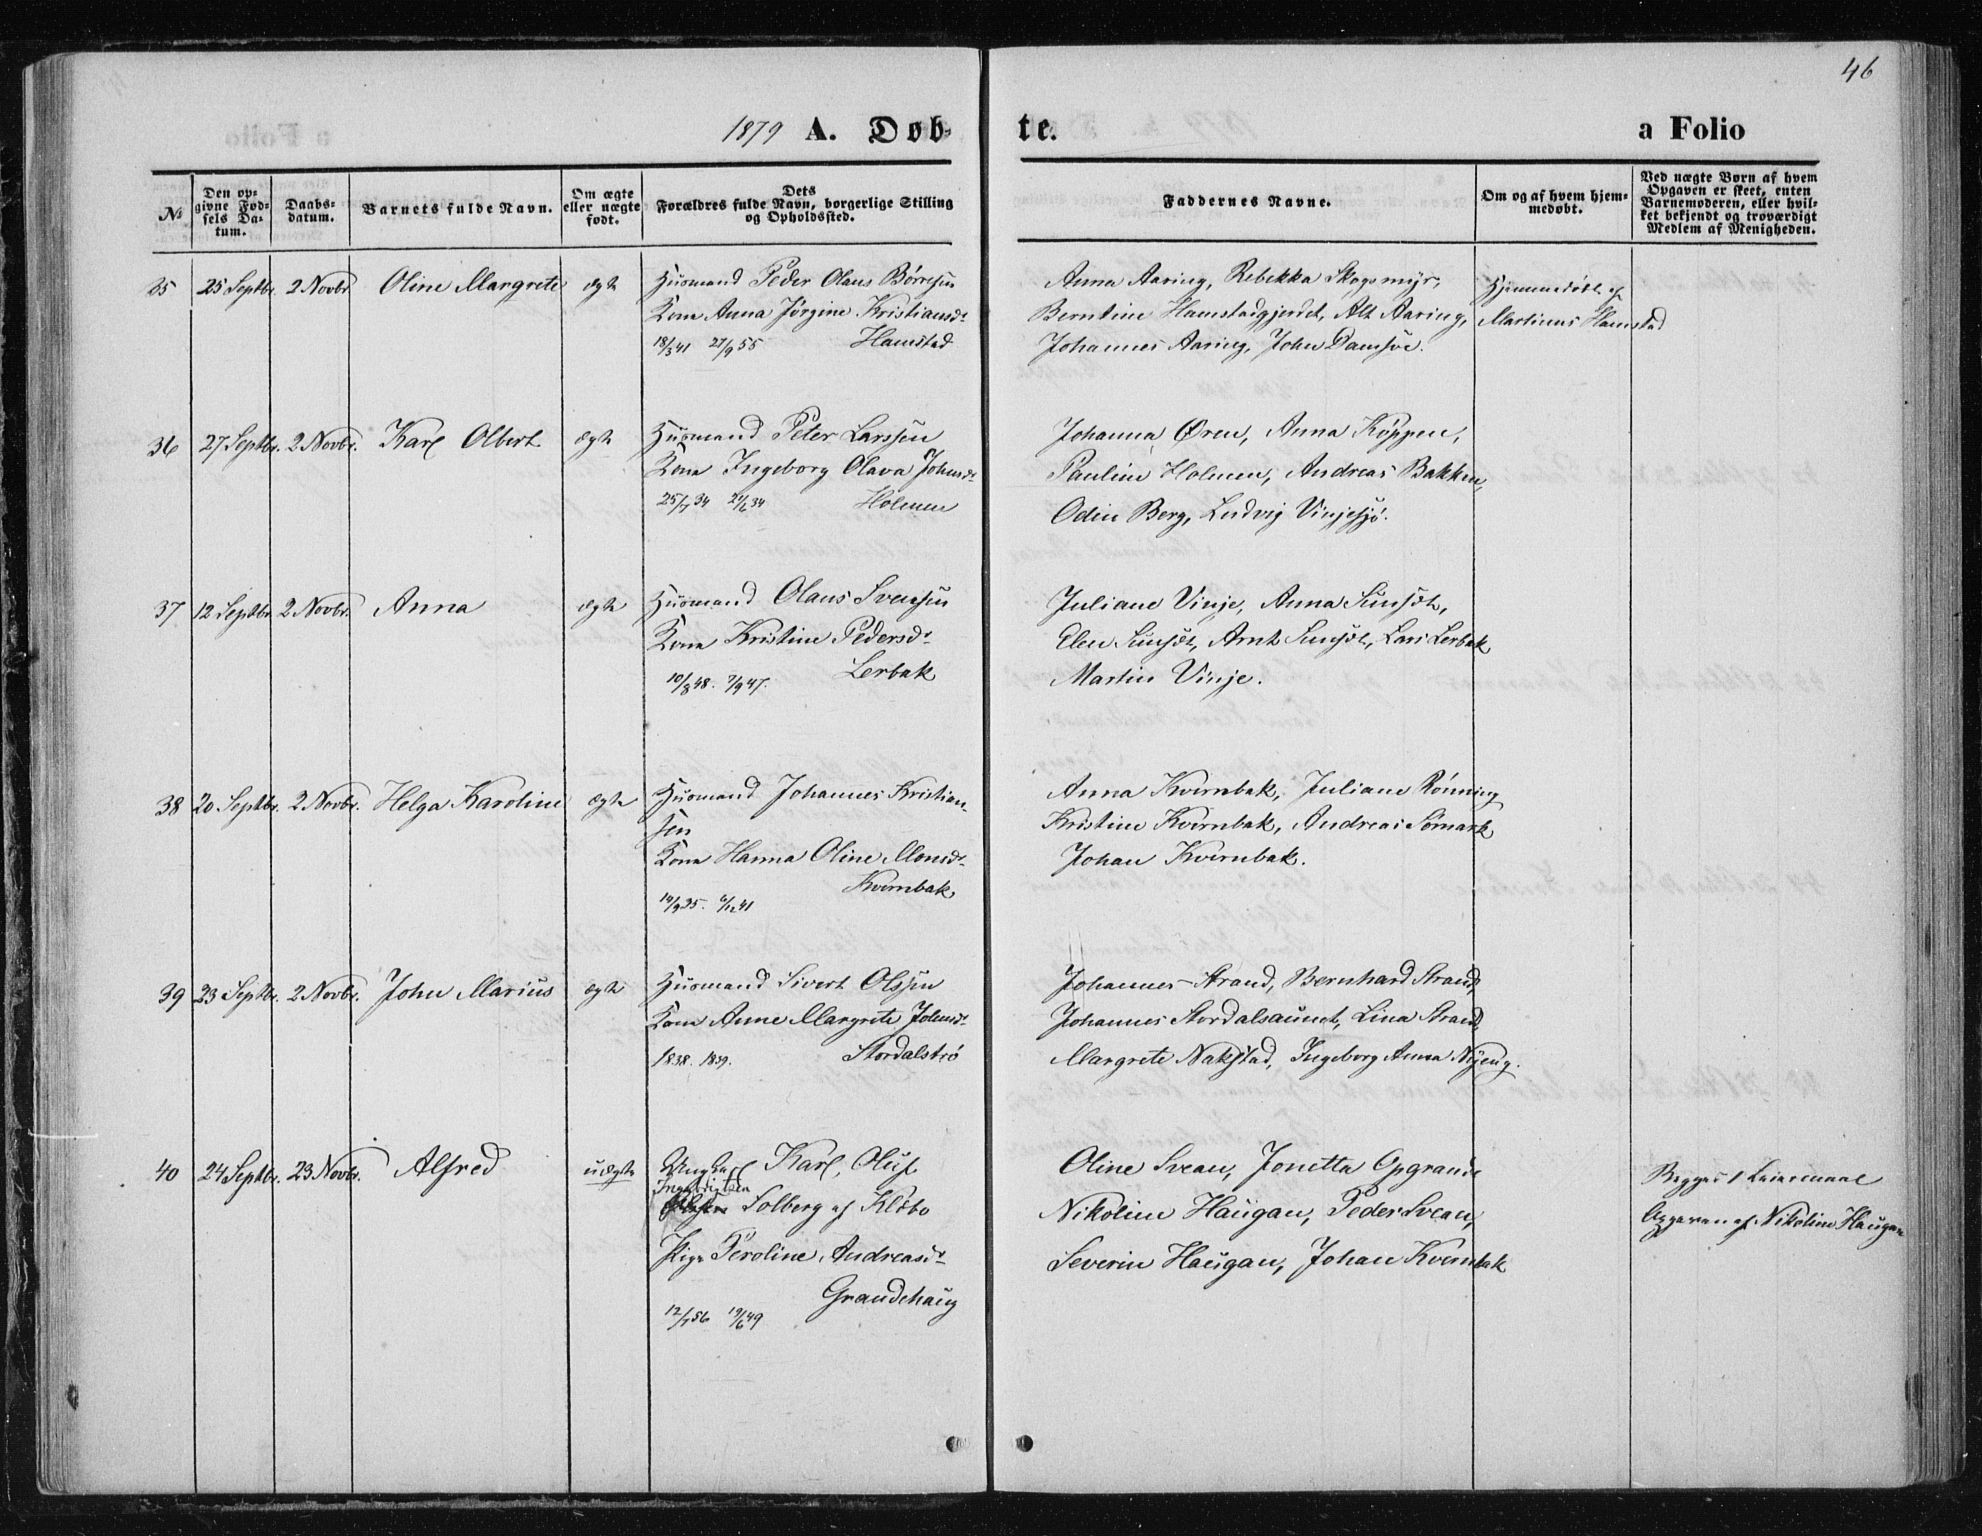 46
1879 A. Døb-
te.
a Folio
№
Den op-
givne Fød-
sels Da-
tum.
Daabs-
datum.
Barnets fulde Navn.
Om ægte
eller uægte
født.
Dets
Forældres fulde Navn, borgerlige Stilling
og Opholdssted.
Faddernes Navne.
Om og af hvem hjem-
medøbt.
Ved uægte Børn af hvem
Opgaven er skeet, enten
Barnemoderen, eller hvil-
ket bekjendt og troværdigt
Medlem af Menigheden.
35 25 Septbr. 2 Novbr. Oline Margrete ægte
Husmand Peder Olaus Børresen
Kone Anna Jørgine Kristiansdr
18/3 41 27/9 55 Hamstad
Anna Aaring, Rebekka Skogsmyr,
Berntine Hamstadgjerdet, Alt Aaring,
Johannes Aaring, John Damsøe.
Hjemmedøbt af
Martinus Hamstad
36 27 Septbr. 2 Novbr. Karl Olbert ægte
Husmand Peter Larssen
Kone Ingeborg Olava Johnsdr
25/7 34 29/6 34 Holmen
Johanna Øren, Anna Køppen,
Pauline Holmen, Andreas Bakken,
Odin Berg, Ludvig Vinjesjø.
37 12 Septbr. 2 Novbr. Anna ægte
Husmand Olaus Svensen
Kone Kristine Pedersdr
10/8 48. 7/9 47. Lerbak
Juliane Vinje, Anna
Elen Arnt Lars Lerbak
Martin Vinje.
38 20 Septbr. 2 Novbr. Helga Karoline ægte
Husmand Johannes Kristian-
sen
Kone Hanna Oline Monsdr
14/9 35. 6/12 41 Kvernbak
Anna Kvernbak, Juliane Rønning
Kristine Kvernbak, Andreas Sømark
Johan Kvernbak.
39 23 Septbr. 2 Novbr. John Marius ægte
Husmand Sivert Olssen
Kone Anne Margrete Johnsdr
1838. 1839. Stordalstrø
Johannes Strand, Bernhard Strand,
Johannes Stordalsaunet, Lina Strand,
Margrete Nakstad, Ingeborg Anna Nyeng.
40 24 Septbr. 23 Novbr. Alfred uægte
Ungkarl Karl Oluf
Ingebrigtsen
Solberg af Klæbo
Pige Peroline Andreasdr
Grandehaug
12/7 56 19/6 49
Oline Svean, Jonetta Opgrande
Nikoline Haugan, Peder Svean,
Severin Haugan, Johan Kvernbak
Begges 1 Leiermaal
Opgaven af Nikoline Haugan